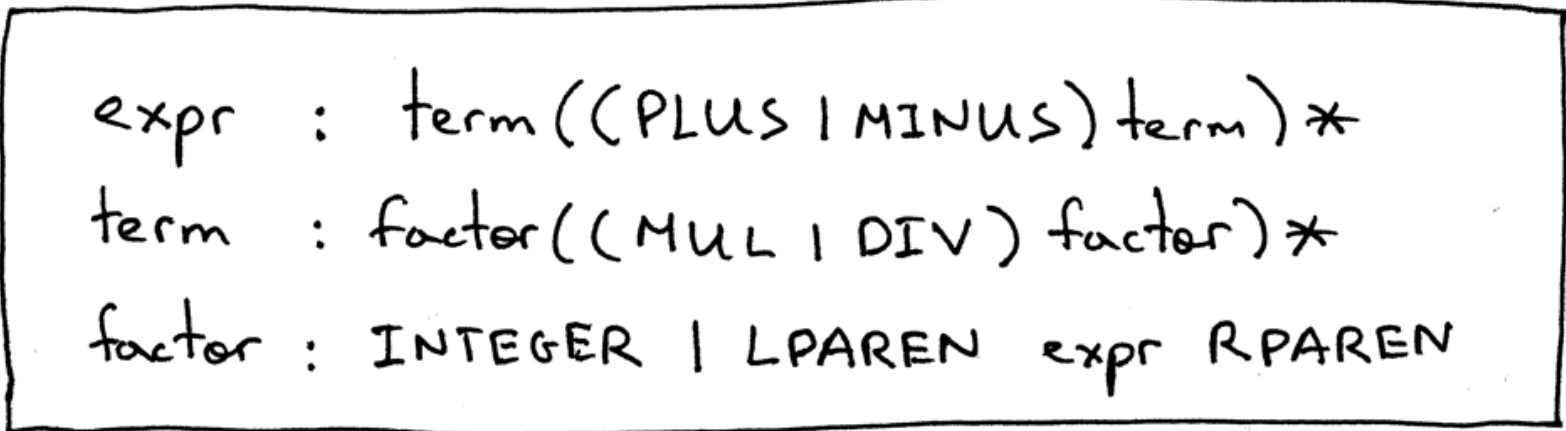 expr : term((PLUS | MINUS) term)*
term : factor((MUL | DIV) factor)*
factor : INTEGER | LPAREN expr RPAREN